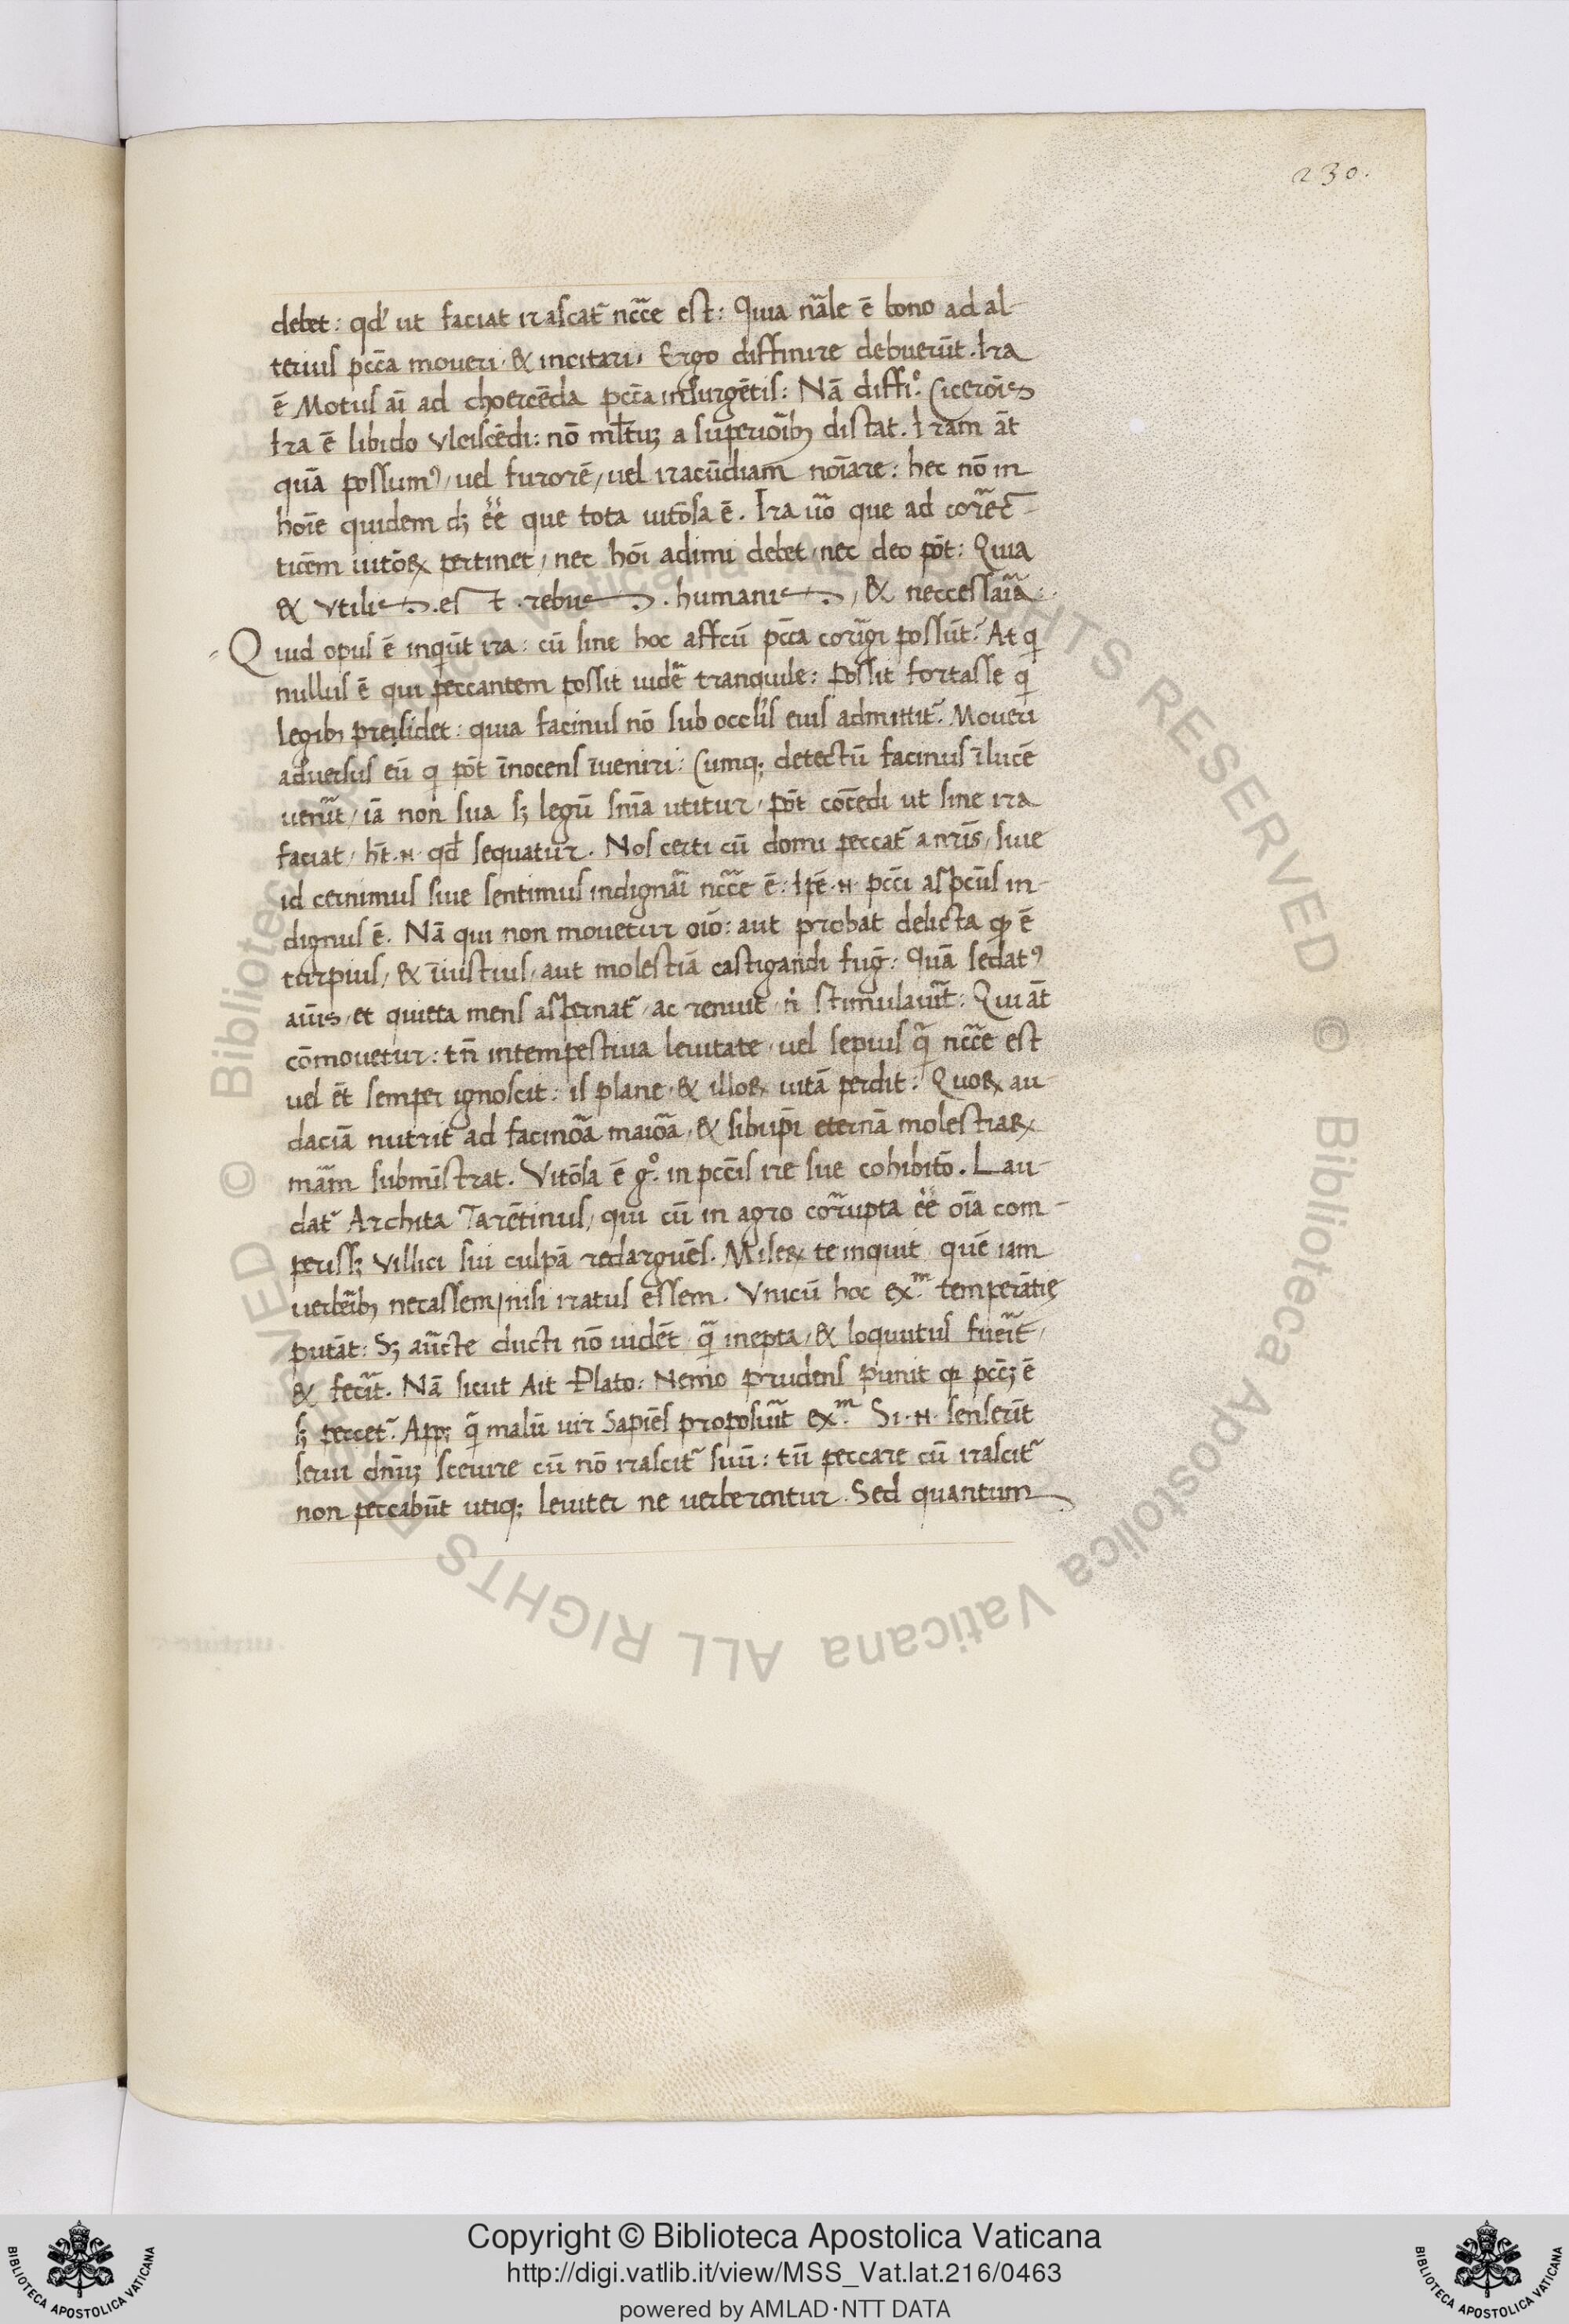 230.
debet: qď ut faciat irascat᷑ ncc̄e est: Quia nāle ē bono ad al-
terius pcc̄a moueri & incitari, Ergo diffinire debuerūt. Ira
ē Motus aī ad choercēda pcc̄a insurgētis: Nā diffiᵒ. Ciceroīs
Ira ē libido vlciscēdi: nō ml̄tuꝫ a superioībꝫ distat. Iram āt
quā possumꝰ, uel furorē, uel iracūdiam noīare: hec nō in
hoīe quidem dꝫ ēē que tota uitōsa ē. Ira uō que ad corēc-
ticēm uitōꝝ pertinet, nec hoī adimi debet, nec deo pōt: Quia
& vtilis .est .rebus .humanis, & neccessaīa:
Quid opus ē inqūt ira: cū sine hoc affcū pcc̄a corīgi possūt? At qi
nullus ē qui peccantem possit uidē tranquile: Possit fortasse qi
legibꝫ presidet: quia facinus nō sub occl̄is eius admittit᷑. Moueri
aduersus eū qi pōt īnocens īueniri: Cumqꝫ detectū facinus ī lucē
uenīt, iā non sua sꝫ legū snīa utitur, pōt cōcedi ut sine ira
faciat, ht̄ .N. qd̄ sequatur. Nos certi cū domi peccat᷑ a nrīs, siue
id cernimus siue sentimus indignāī ncc̄e ē: Ip̄e .N. pcc̄i aspcūs in-
dignus ē. Nā qui non mouetur oīo: aut probat delicta ꝙ ē
turpius, & īiustius, aut molestiā castigandi fuḡ: Quā sedatꝰ
aīus, et quieta mens aspernat᷑, ac renuit, ṅ stimulauīt: Qui āt
cōmouetur: tn̄ intempestiua leuitate, uel sepius q̄ ncc̄e est
uel ēt semper ignoscit: is plane & illoꝝ uitā perdit: Quoꝝ au-
daciā nutrit ad facinōa maiōa, & sibiipī eternā molestiaꝝ
mām submīstrat. Vitōsa ē gᵒ. in pcc̄is ire sue cohibitō. Lau-
dat᷑ Archita Tarētinus, qui cū in agro corrupta ēē oīa com-
perissꝫ villici sui culpā redarguēs. Miseꝝ te inquit quē iam
uerbēibꝫ necassem, nisi iratus essem. Vnicū hoc exᵐ. temperātię
putāt: Sꝫ aūcte ducti nō uidēt q̄ inepta, & loquutus fuēit,
& fecīt. Nā sicut Ait Plato: Nemo prudens punit qꝛ pcc̄ꝫ ē
sꝫ peccet᷑. Appꝫ q̄ malū uir Sapiēs proposuīt exᵐ. Si .N. senserīt
serui dnīuꝫ sceuire cū nō irascit᷑ suū: tū peccare cū irascit᷑
non peccabūt utiqꝫ leuiter ne uerberentur. Sed quantum
Copyright © Biblioteca Apostolica Vaticana
http://digi.vatlib.it/view/MSS_Vat.lat.216/0463
powered by AMLAD·NTT DATA